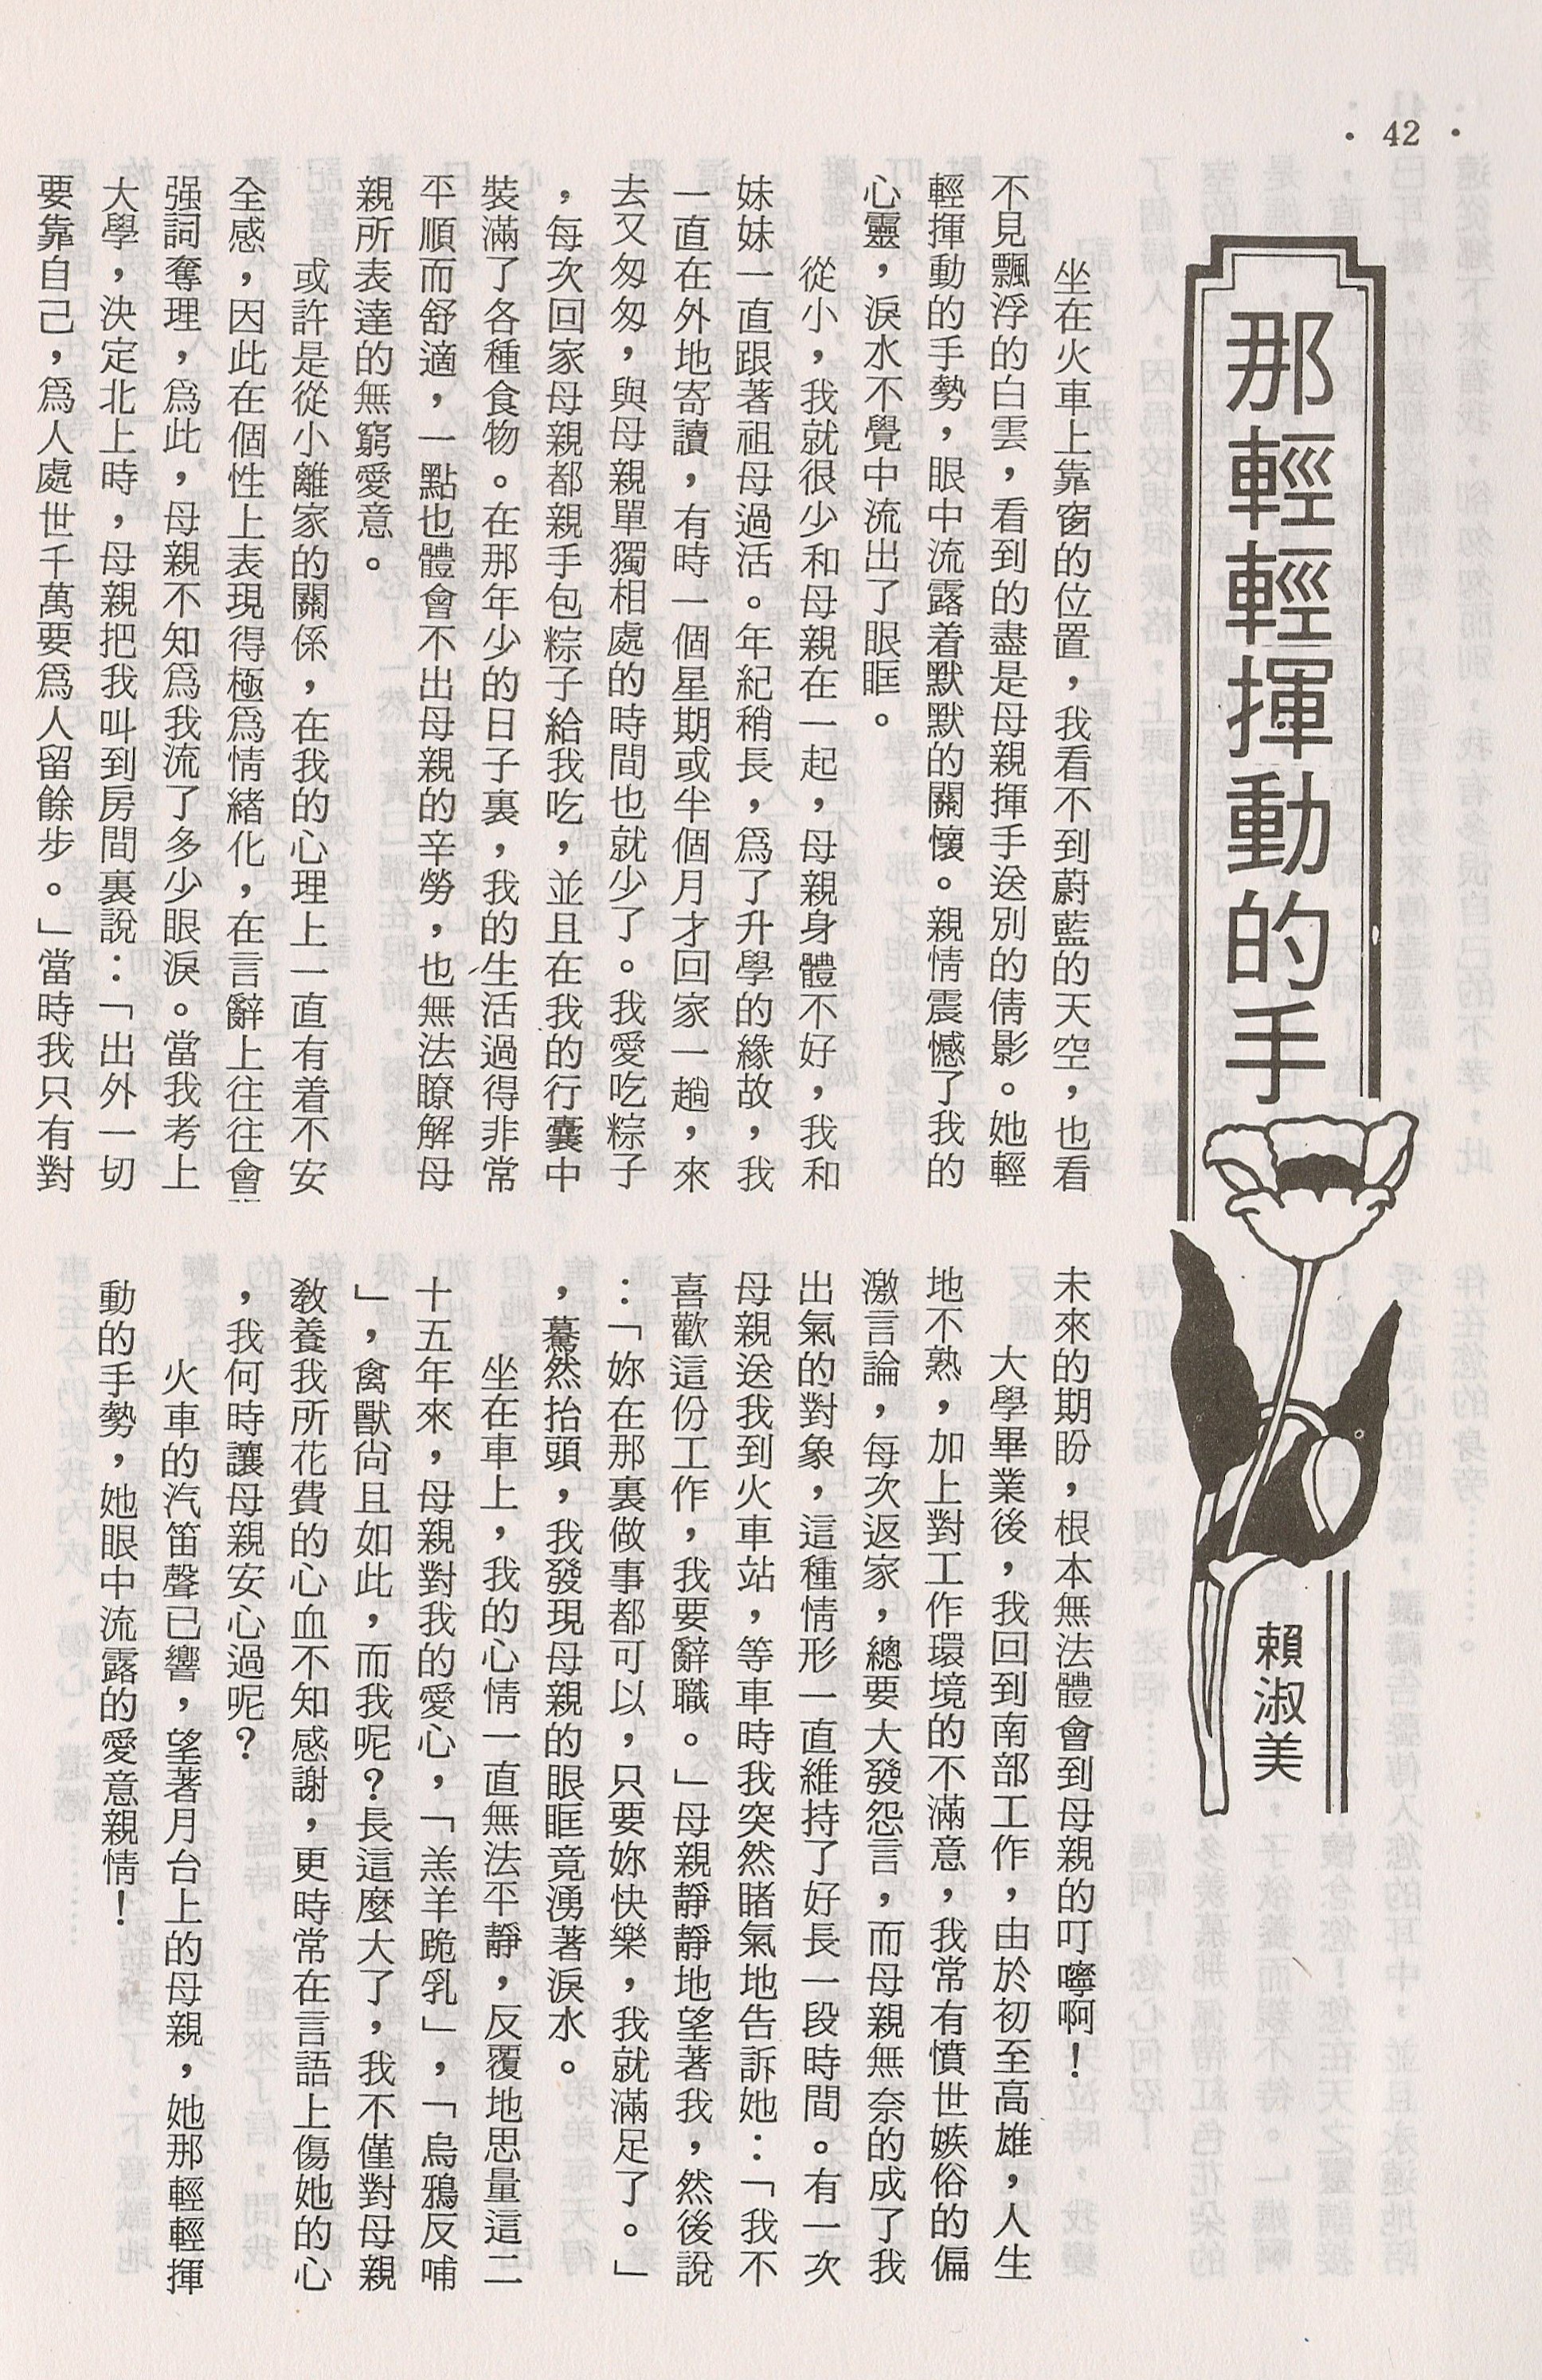 · 42 ·
那輕輕揮動的手
賴淑美
坐在火車上靠窗的位置，我看不到蔚藍的天空，也看
不見飄浮的白雲，看到的盡是母親揮手送別的倩影。她輕
輕揮動的手勢，眼中流露着默默的關懷。親情震憾了我的
心靈，淚水不覺中流出了眼眶。
從小，我就很少和母親在一起，母親身體不好，我和
妹妹一直跟著祖母過活。年紀稍長，爲了升學的緣故，我
一直在外地寄讀，有時一個星期或半個月才回家一趟，來
去又匆匆，與母親單獨相處的時間也就少了。我愛吃粽子
，每次回家母親都親手包粽子給我吃，並且在我的行囊中
裝滿了各種食物。在那年少的日子裏，我的生活過得非常
平順而舒適，一點也體會不出母親的辛勞，也無法瞭解母
親所表達的無窮愛意。
或許是從小離家的關係，在我的心理上一直有着不安
全感，因此在個性上表現得極爲情緒化，在言辭上往往會
强詞奪理，爲此，母親不知爲我流了多少眼淚。當我考上
大學，決定北上時，母親把我叫到房間裏說：「出外一切
要靠自己，爲人處世千萬要爲人留餘步。」當時我只有對
未來的期盼，根本無法體會到母親的叮嚀啊！
大學畢業後，我回到南部工作，由於初至高雄，人生
地不熟，加上對工作環境的不滿意，我常有憤世嫉俗的偏
激言論，每次返家，總要大發怨言，而母親無奈的成了我
出氣的對象，這種情形一直維持了好長一段時間。有一次
母親送我到火車站，等車時我突然賭氣地告訴她：「我不
喜歡這份工作，我要辭職。」母親靜靜地望著我，然後說
：「妳在那裏做事都可以，只要妳快樂，我就滿足了。」
，驀然抬頭，我發現母親的眼眶竟湧著淚水。
坐在車上，我的心情一直無法平靜，反覆地思量這二
十五年來，母親對我的愛心，「羔羊跪乳」，「烏鴉反哺
」，禽獸尚且如此，而我呢？長這麼大了，我不僅對母親
敎養我所花費的心血不知感謝，更時常在言語上傷她的心
，我何時讓母親安心過呢？
火車的汽笛聲已響，望著月台上的母親，她那輕輕揮
動的手勢，她眼中流露的愛意親情！